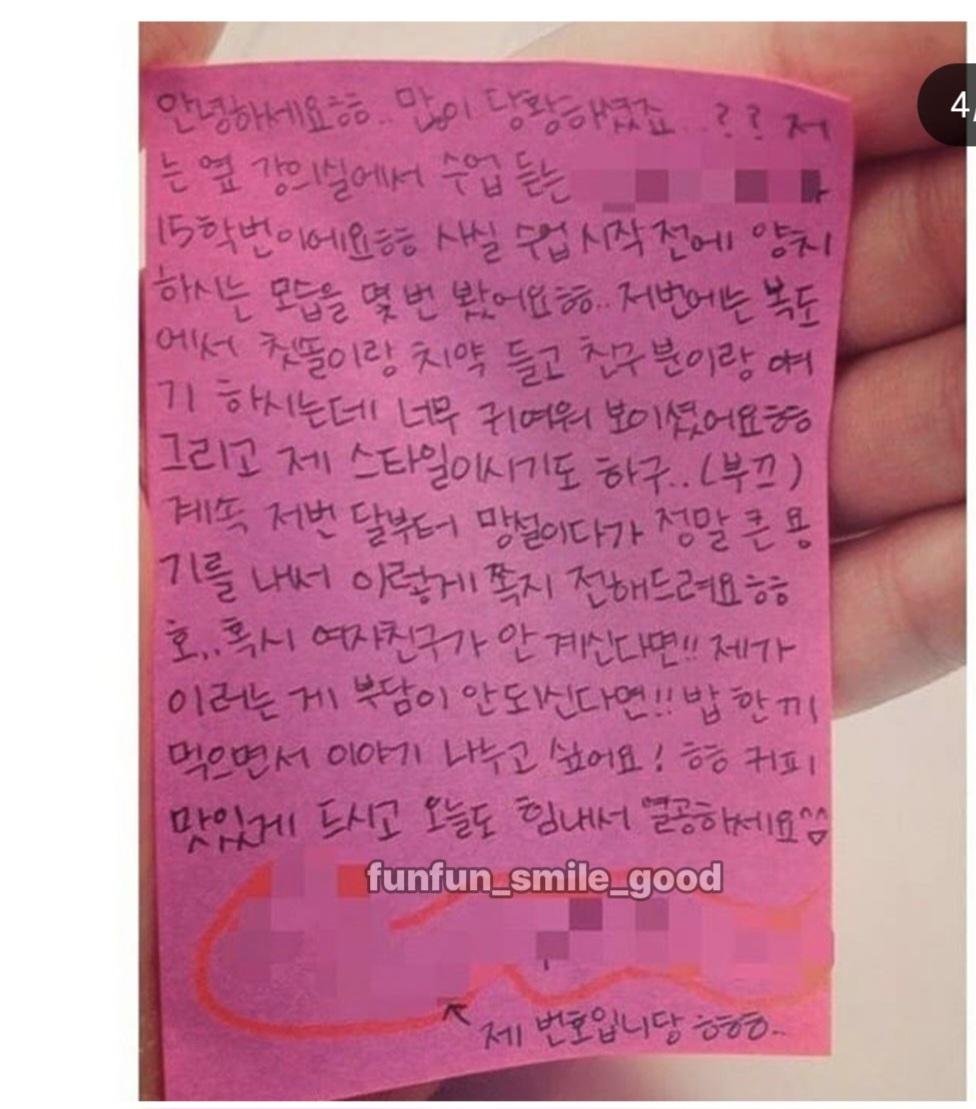 안녕하세요ㅎㅎ.. 많이 당황하셨죠..?? 저
는 옆 강의실에서 수업 듣는
15학번이에요ㅎㅎ 사실 수업 시작 전에 양치
하시는 모습을 몇 번 봤어요ㅎㅎ.. 저번에는 복도
에서 칫똘이랑 치약 들고 친구 분이랑 얘
기 하시는데 너무 귀여워 보이셨어요ㅎㅎ
그리고 제 스타일이시기도 하구..(부끄)
계속 저번 달부터 망설이다가 정말 큰 용
기를 내서 이렇게 쪽지 전해드려요ㅎㅎ
호..혹시 여자친구가 안 계신다면!! 제가
이러는 게 부담이 안되신다면!! 밥 한 끼
먹으면서 이야기 나누고 싶어요! ㅎㅎ 커피
맛있게 드시고 오늘도 힘내서 열공하세요^^
funfun_smile_good
제 번호입니당 ㅎㅎㅎ..
4/